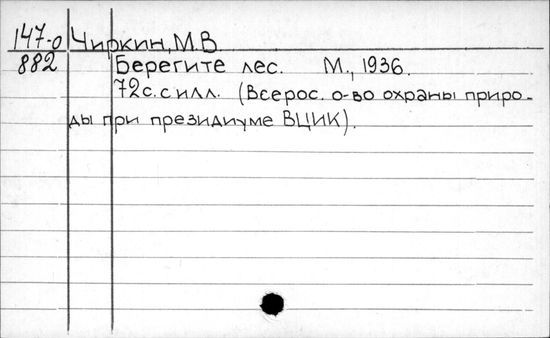 147-о Чиркин, М.В
882 Берегите лес. М., 1936.
72с. с илл. (Всерос. о-во охраны приро-
ды при президиуме ВЦИК).